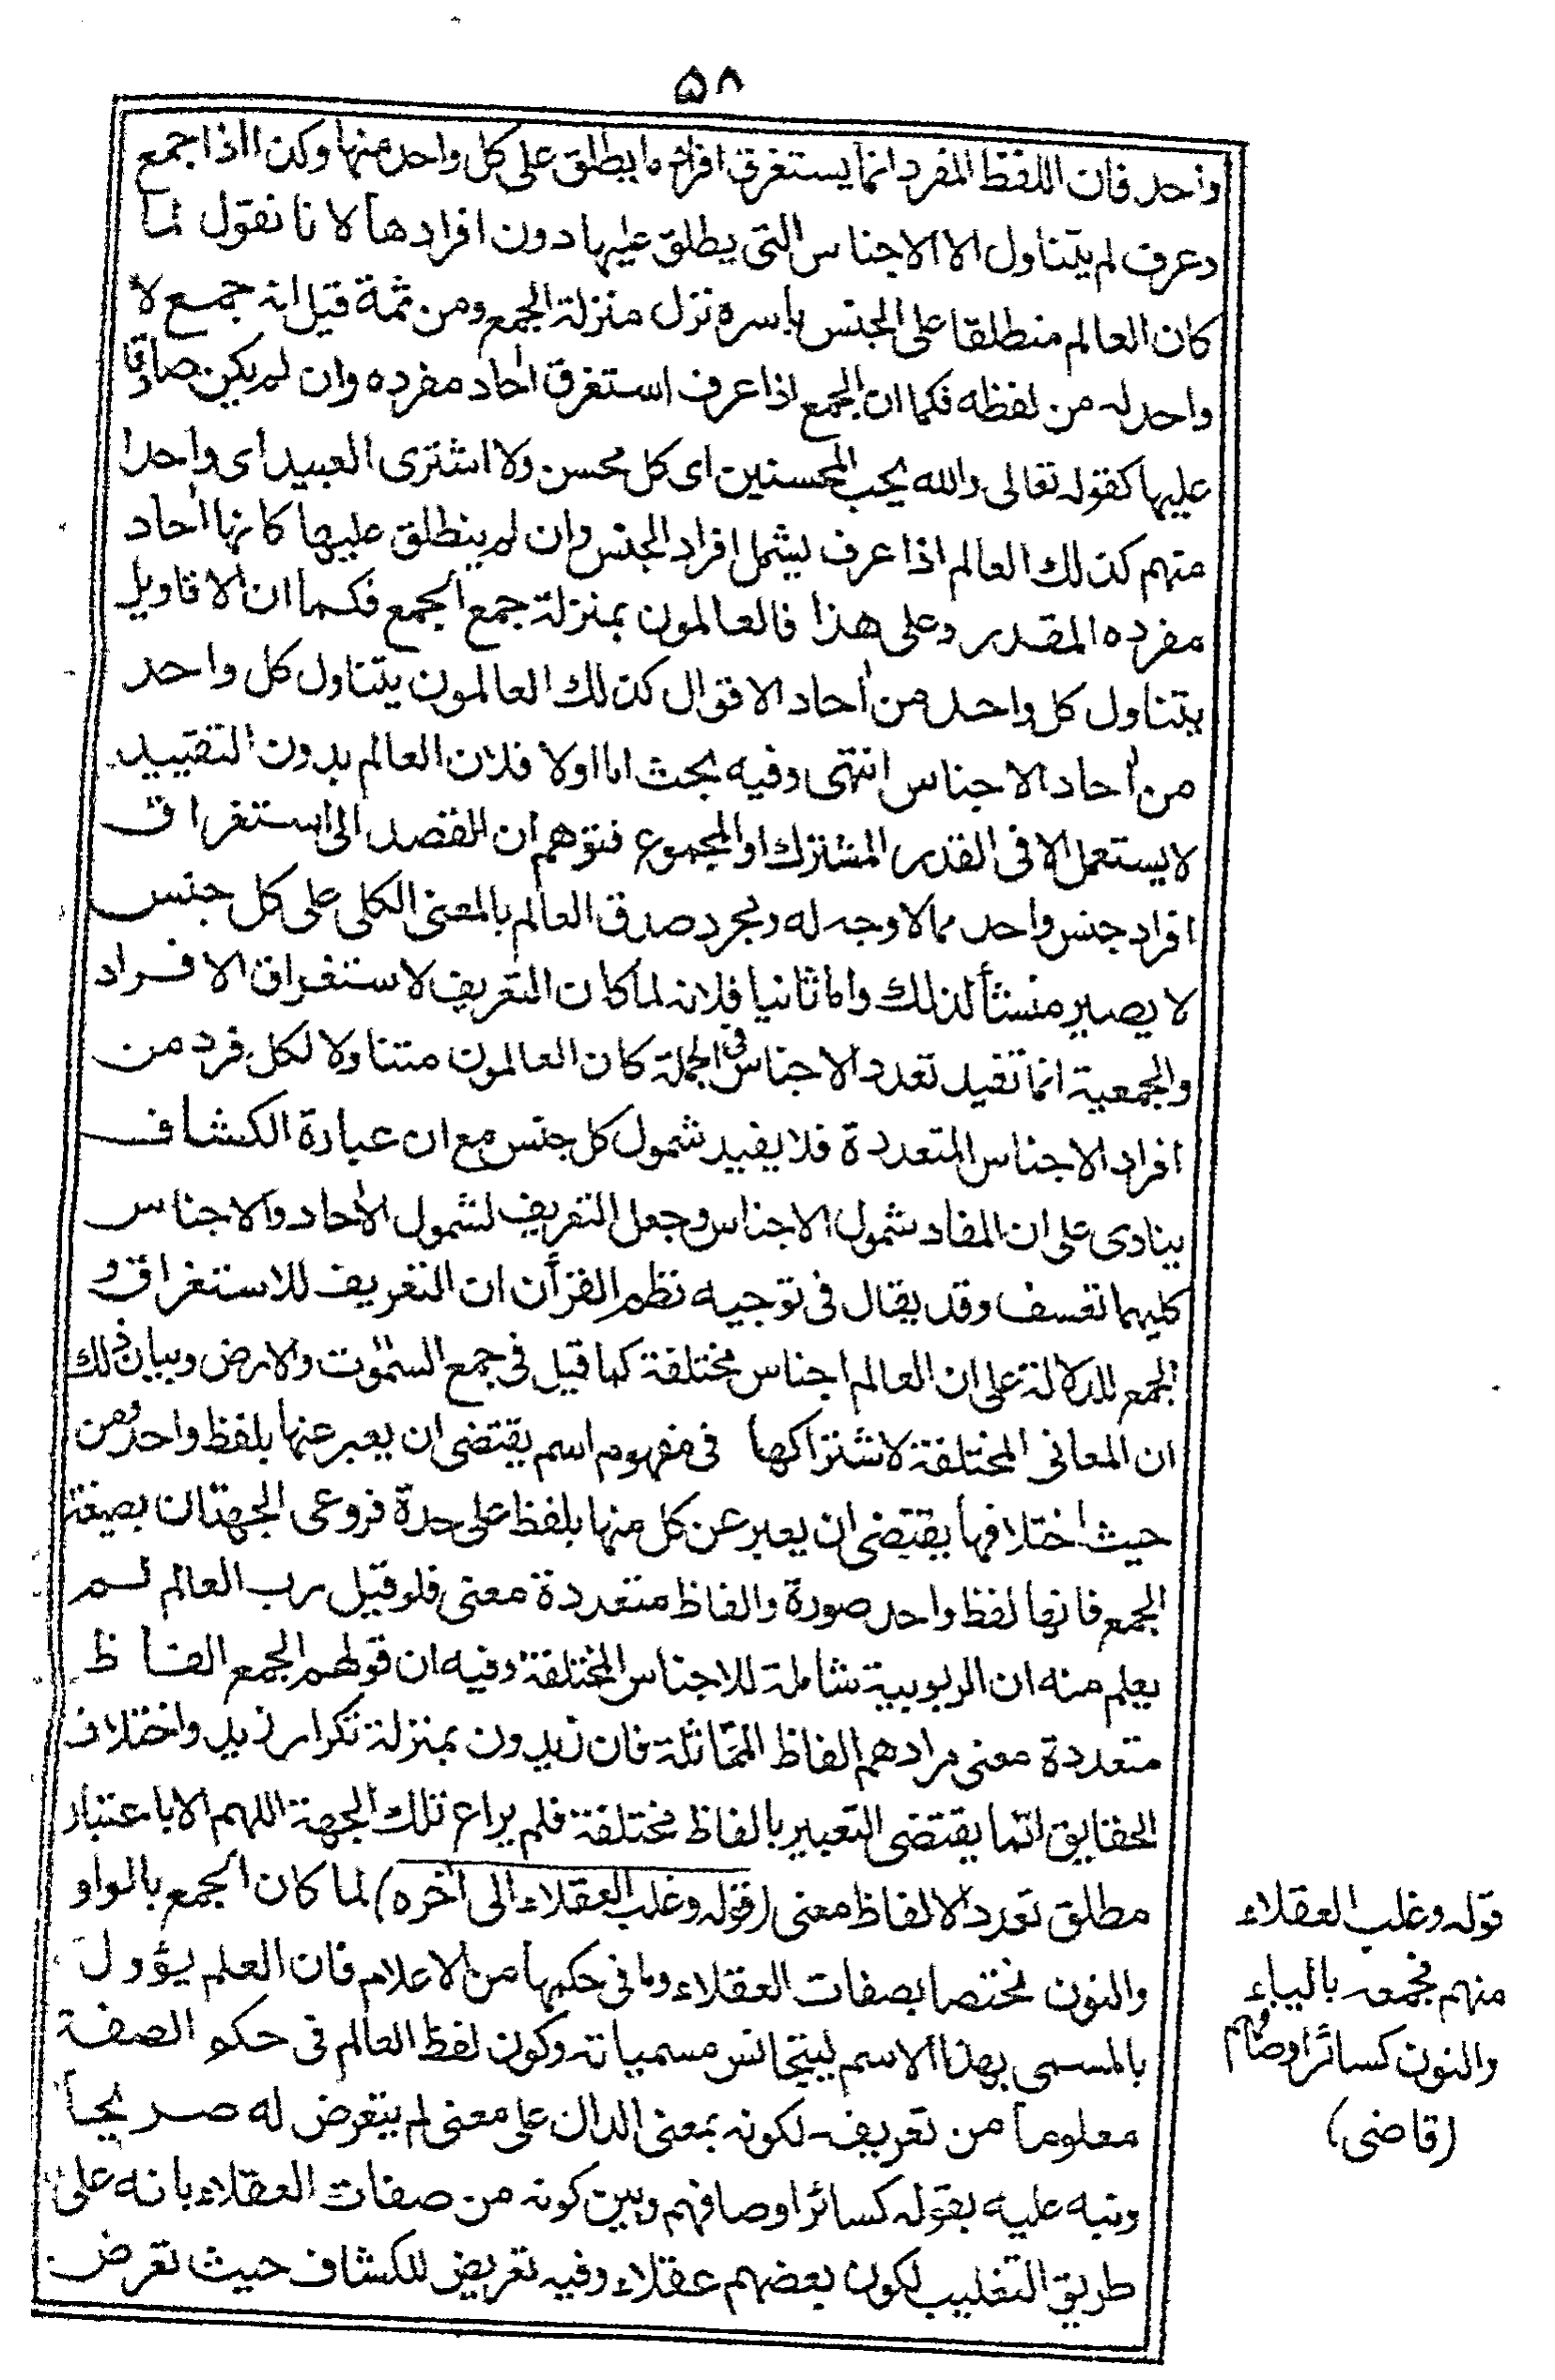 ٥٨
واحد فان اللفظ المفرد انما يستغرق افراد ما يطلق على كل واحد منها وكذا اذا جمع
وعرف لم يتناول الا الاجناس التى يطلق عليها دون افرادها لا نا نقول لما
كان العالم منطلقا على الجنس باسره نزل منزلة الجمع ومن ثمة قيل انه جمع لا
واحد له من لفظه فكما ان الجمع اذا عرف استغرق اٰحاد مفرده وان لم يكن صادقا
عليها كقوله تعالى والله يحب المحسنين اى كل محسن ولا اشترى العبيد اى واحدا
منهم كذلك العالم اذا عرف يشمل افراد الجنس وان لم ينطلق عليها كانها اٰحاد
مفرده المقدر وعلى هذا فالعالمون بمنزلة جمع الجمع فكما ان الاقاويل
يتناول كل واحد من اٰحاد الاقوال كذلك العالمون يتناول كل واحد
من اٰحاد الاجناس انتهى وفيه بحث اما اولا فلان العالم بدون التقييد
لا يستعمل الا فى القدر المشترك او المجموع فتوهم ان القصد الى استغراق
افراد جنس واحد مما لا وجه له وبجرد صدق العالم بالمعنى الكلى على كل جنس
لا يصير منشأ لذلك واما ثانيا فلانه لما كان التعريف لاستغراق الافراد
والجمعية انما تفيد تعدد الاجناس فى الجملة كان العالمون متناولا لكل فرد من
افراد الاجناس المتعددة فلا يفيد شمول كل جنس مع ان عبارة الكشاف
ينادى على ان المفاد شمول الاجناس وجعل التعريف لشمول الاٰحاد والاجناس
كليهما تعسف وقد يقال فى توجيه نظم القراٰن ان التعريف للاستغراق و
الجمع للدلالة على ان العالم اجناس مختلفة كما قيل فى جمع السمٰوٰت والارض وبيان ذلك
ان المعانى المختلفة لاشتراكها فى مفهوم اسم يقتضى ان يعبر عنها بلفظ واحد ومن
حيث اختلافها يقتضى ان يعبر عن كل منها بلفظ على حدة فروعى الجهتان بصيغة
الجمع فانها لفظ واحد صورة والفاظ متعددة معنى فلو قيل رب العالم لم
يعلم منه ان الربوبية شاملة للاجناس المختلفة وفيه ان قولهم الجمع الفاظ
متعددة معنى مرادهم الفاظ المتماثلة فان زيدون بمنزلة تكرار زيد واختلاف
الحقايق انما يقتضى التعبير بالفاظ مختلفة فلم يراع تلك الجهة اللهم الا باعتبار
مطلق تعدد الالفاظ معنى (قوله وغلب العقلاء الى اٰخره) لما كان الجمع بالواو
والنون مختصا بصفات العقلاء وما فى حكمها من الاعلام فان العلم يؤول
بالمسمى بهذا الاسم ليتجانس مسمياته وكون لفظ العالم فى حكم الصفة
معلوما من تعريفه لكونه بمعنى الدال على معنى لم يتعرض له صريحا
ونبه عليه بقوله كسائر اوصافهم وبين كونه من صفات العقلاء بانه على
طريق التغليب لكون بعضهم عقلاء وفيه تعريض للكشاف حيث تعرض
قوله وغلب العقلاء
منهم فجمعه بالياء
والنون كسائر اوصافهم
(قاضى)